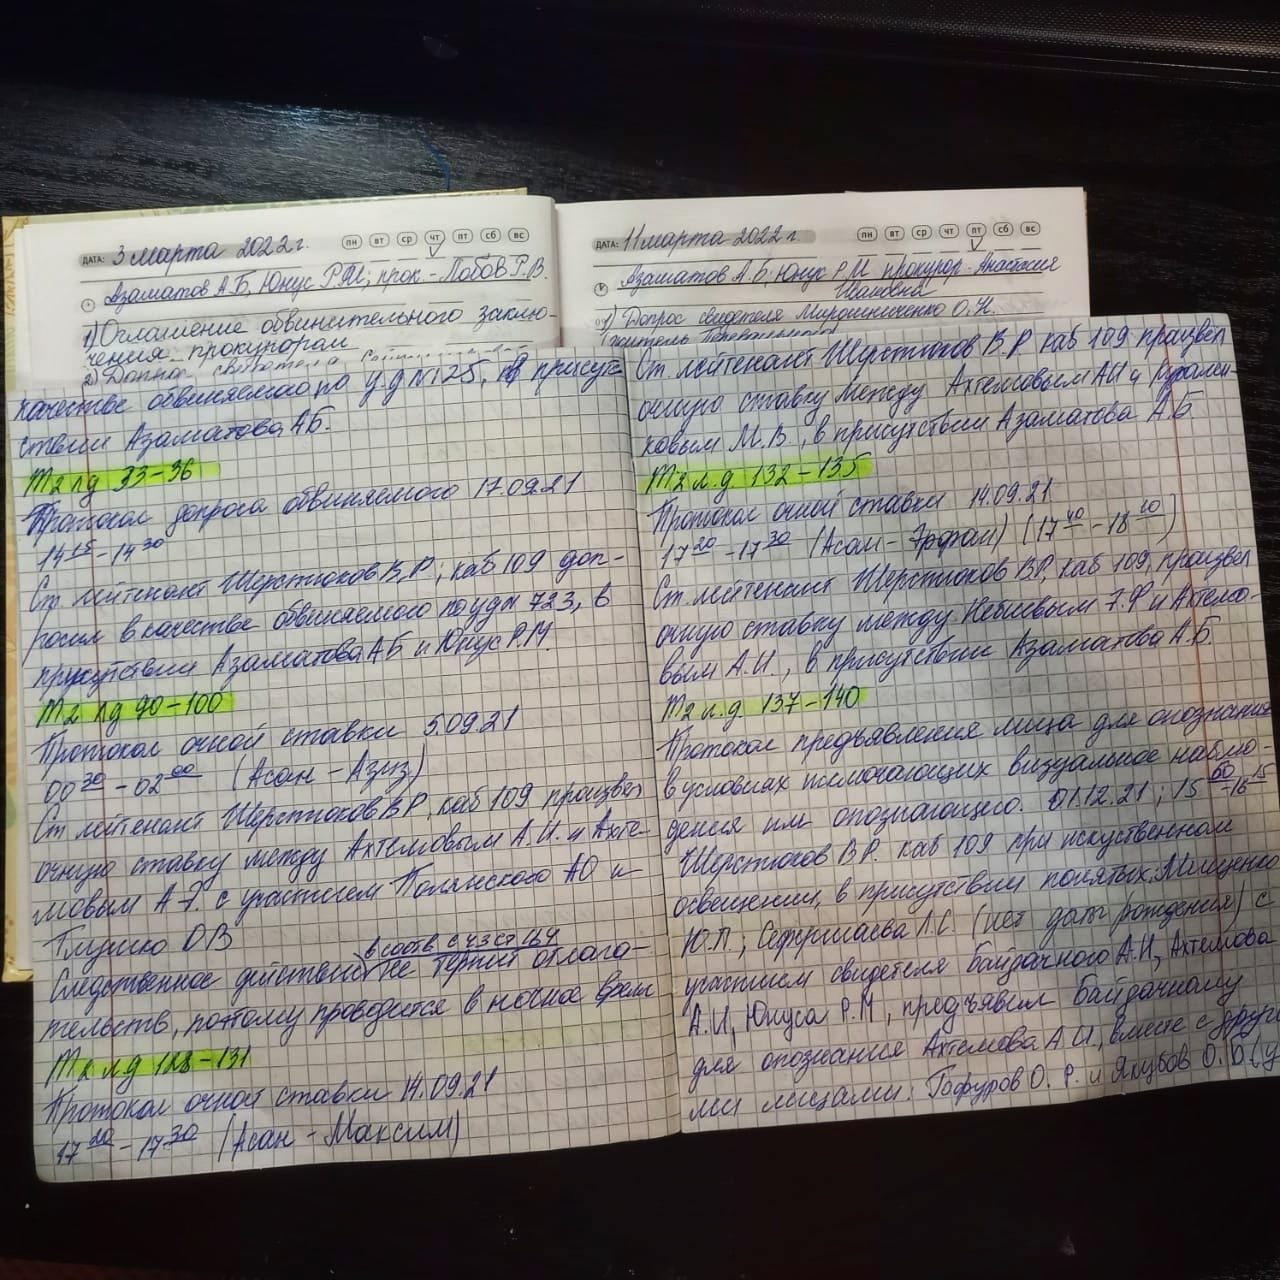 ДАТА: 3 марта 2022 г. пн вт ср чт пт сб вс
Азаматов А.Б, Юнус Р.М; прок. - Лобов Р.В.
1) Оглашение обвинительного заклю-
чения прокурором
2) Допрос свидетеля
ДАТА: 11 марта 2022 г. пн вт ср чт пт сб вс
Азаматов А.Б, Юнус Р.М прокурор - Анастасия
1) Допрос свидетеля Мирошниченко О.Н.
качестве обвиняемого по у.д №125, в присут
ствии Азаматова АБ.
Т2 лд 33-36
Протокол допроса обвиняемого 17.09.21
14 15 - 14 30
Ст. лейтенант Шерстюков В.Р., каб 109 доп-
росил в качестве обвиняемого по уд № 723, в
присутствии Азаматова АБ и Юнус Р.М.
Т2 лд 90-100
Протокол очной ставки 5.09.21
00 30 - 02 00 (Асан - Азиз)
Ст лейтенант Шерстюков ВР, каб 109 произвел
очную ставку между Ахтемовым А.И. и Ахте-
мовым А.Э. с участием Полянского АО и
Глушко ОВ
в соотв с ч3 ст 164
Следственное действие не терпит отлага-
тельств, поэтому проводится в ночное время
Т2 л.д 128-131
Протокол очной ставки 14.09.21
17 20 - 17 30 (Асан - Максим)
Ст. лейтенант Шерстюков В.Р. каб 109 произвел
очную ставку между Ахтемовым АИ и
ковым М.В., в присутствии Азаматова А.Б
Т2 л.д 132-135
Протокол очной ставки 14.09.21
17 20 - 17 30 (Асан - Эрфан) (17 40 - 18 10)
Ст. лейтенант Шерстюков ВР, каб 109, произвел
очную ставку между Э.Ф и Ахтемо-
вым А.И., в присутствии Азаматова А.Б.
Т2 л.д. 137-140
Протокол предъявления лица для опознания
в условиях исключающих визуальное наблю-
дения им опознающего. 01.12.21; 15 50 - 16 15
Шерстюков ВР. каб 109 при искуственном
освещении, в присутствии понятых:
Ю.П.; Л.С. (нет даты рождения) с
участием свидетеля Байдачного А.Н, Ахтемова
А.И, Юнуса Р.М, предъявил Байдачному
для опознания Ахтемова А.И., вместе с други
ми лицами: Гофуров О.Р. и Якубов О.